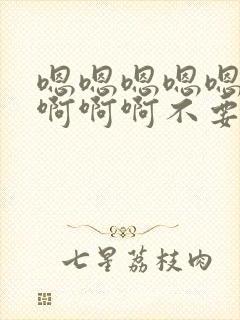 嗯嗯嗯嗯嗯
啊啊啊不要
七星荔枝肉